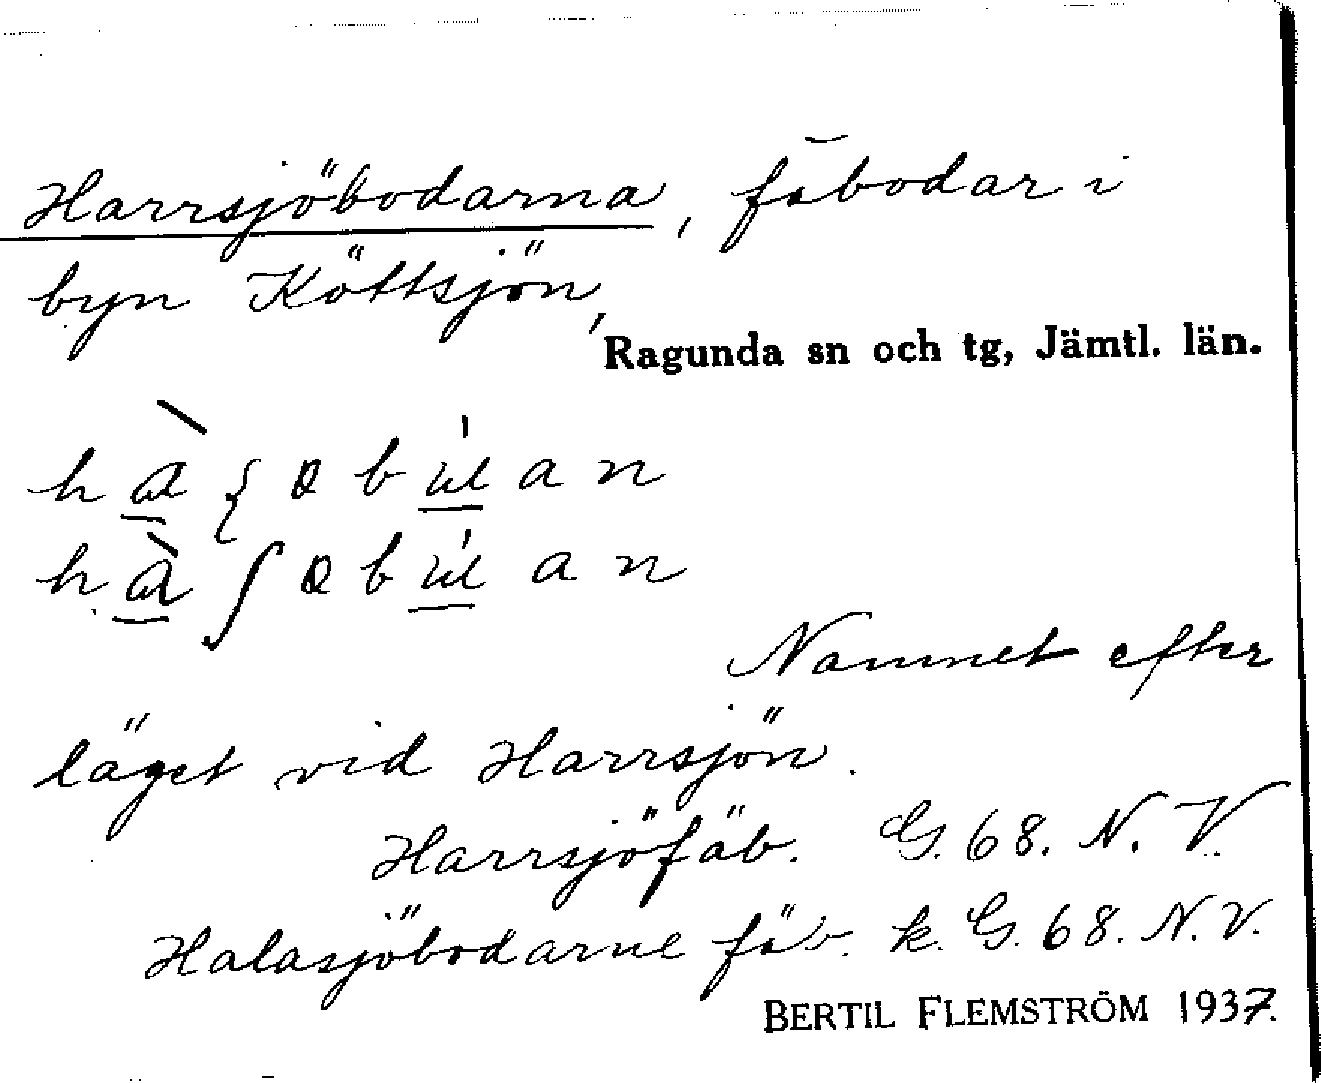 Harrsjöbodarna, fäbodar i
byn Köttsjön,
Ragunda sn och tg, Jämtl. län.
Namnet efter
läget vid Harrsjön.
Harrsjöfäb. G. 68. N. V.
Halasjöbodarne fäb. k. G. 68. N.V.
BERTIL FLEMSTRÖM 1937.